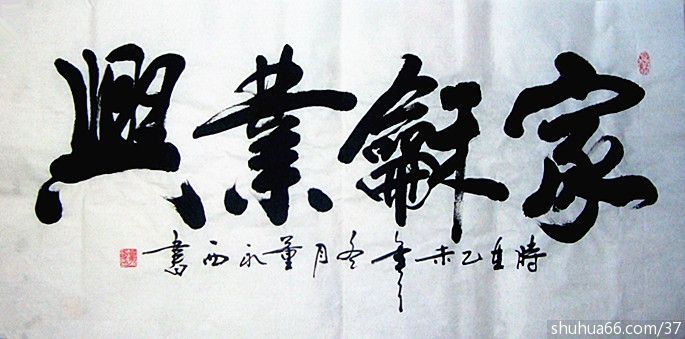 家龢業興
時在乙未年冬月董永西書
shuhua66.com/37